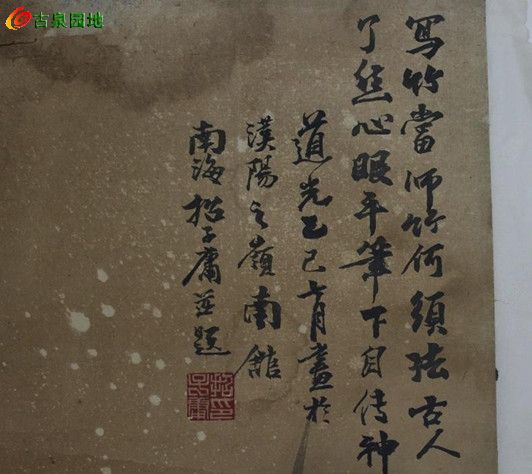 古泉园地
寫竹當師竹何須法古人
了然心眼手筆下自傳神
道光乙巳七月畫於
漢陽之嶺南館
南海招子庸並題